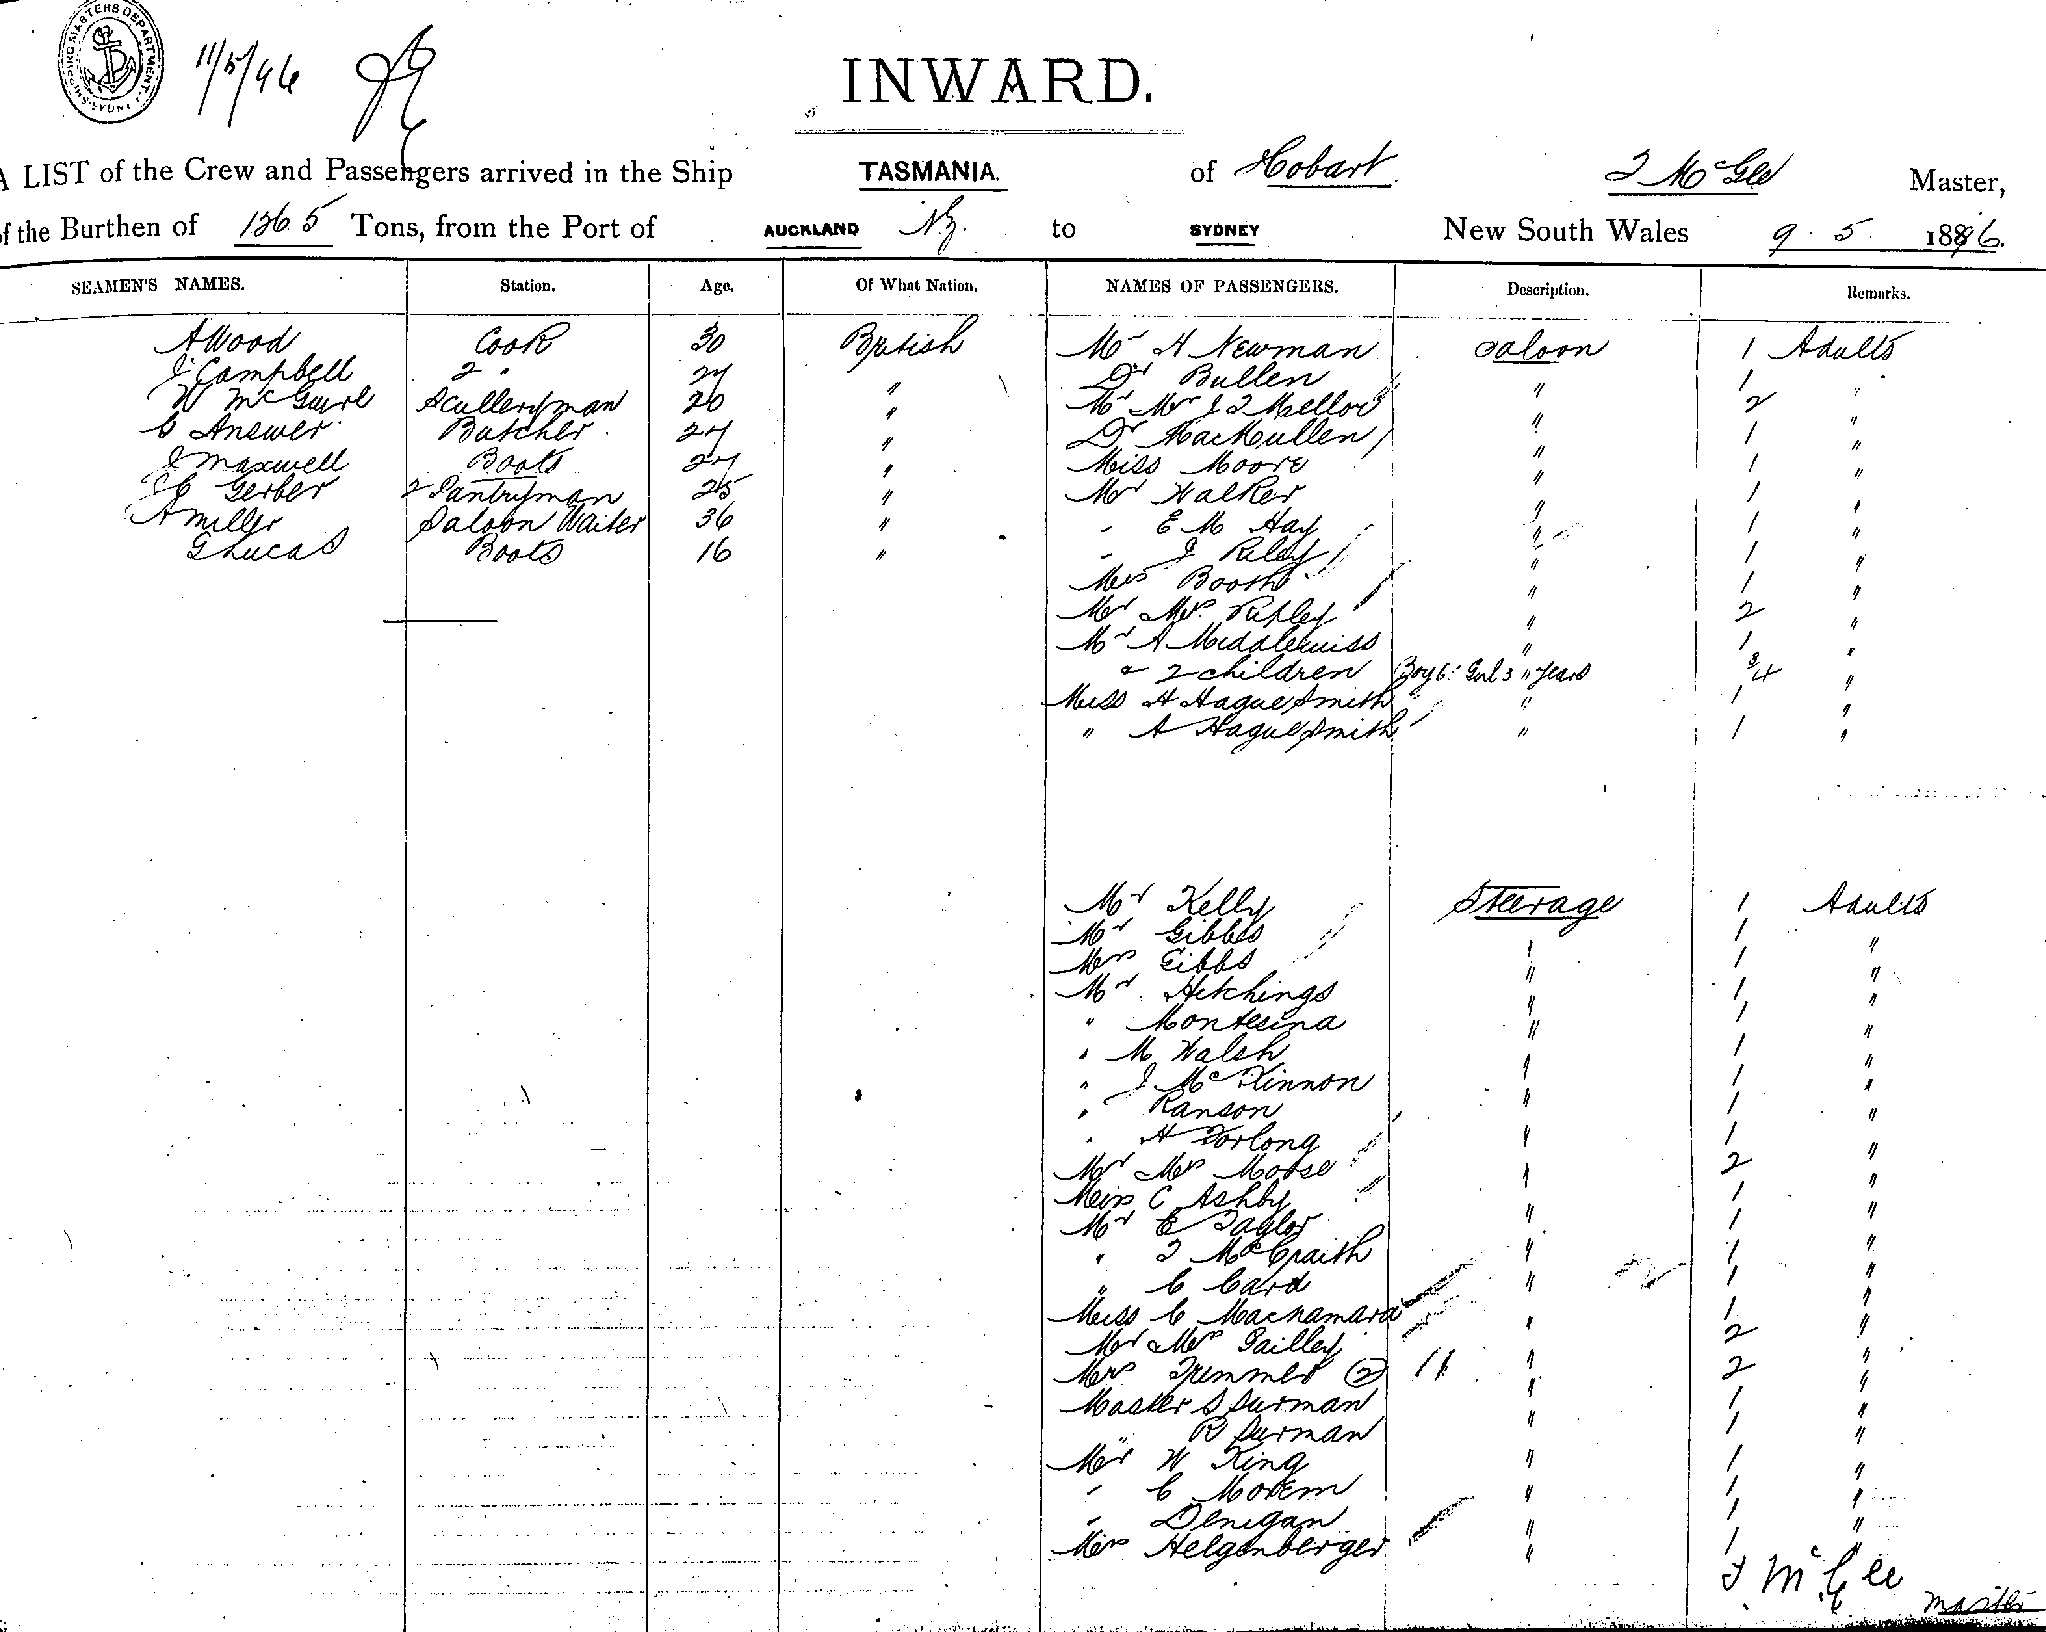 SHIPPING MASTERS DEPARTMENT
11/5/96
INWARD.
A LIST of the Crew and Passengers arrived in the Ship TASMANIA. of Hobart T McGee Master,
of the Burthen of 1265 Tons, from the Port of AUCKLAND NZ. to SYDNEY New South Wales 9.5.1896.
SEAMEN'S NAMES. Station. Age. Of What Nation. NAMES OF PASSENGERS. Description. Remarks.
A Wood Cook 30 British Mr H Newman Saloon 1 Adults
J Campbell 2 " 27 " Dr Bullen " 1 "
W Sculleryman 20 " Mr Mrs J T Mellor " 2 "
C Answer Butcher 27 " Dr MacMullen " 1 "
J Maxwell Boots 27 " Miss Moore " 1 "
Gerber 2 Pantryman 25 " Mr Walker " 1 "
A Miller Saloon Waiter 36 " " E M Hay " 1 "
G Lucas Boots 16 " " J Riley " 1 "
Mrs Booth " 1 "
Mr Mrs Ripley " 2 "
Mr A Middlemiss " 1 "
& 2 children Boy 6 Girl 3 years 3/4 "
Miss H Hague Smith " 1 "
" A Hague Smith " 1 "
Mr Kelly Steerage 1 Adults
Mr Gibbs " 1 "
Mrs Gibbs " 1 "
Mr Hitchings " 1 "
" Montesina " 1 "
" M Walsh " 1 "
" J McKinnon " 1 "
" Ranson " 1 "
" H Forlong " 1 "
Mr Mrs Moose " 2 "
Miss C Ashby " 1 "
Mr E Taylor " 1 "
" T McCraith " 1 "
" C Card " 1 "
Miss C Macnamara " 1 "
Mr Mrs Gailley " 2 "
Mrs Trimmer 2 11 " 2 "
Master S Surman " 1 "
" R Surman " 1 "
Mr W King " 1 "
" C " 1 "
" Denigan " 1 "
Mrs Helgenberger " 1 "
T McGee
Master